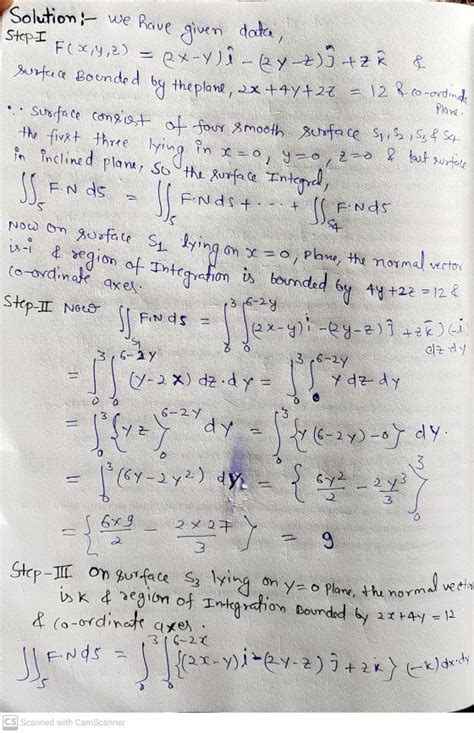 Solution:- we have given data,
Step-I
F(x,y,z) = (2x-y)î - (2y-z)ĵ + z k̂ &
surface Bounded by the plane, 2x+4y+2z = 12 & co-ordinate Plane.
∵ surface consist of four smooth surface S₁, S₂, S₃ & S₄
the first three lying in x=0, y=0, z=0 & last surface
in inclined plane, so the surface Integral,
∬_S F·N ds = ∬_S F·N ds + ... + ∬_S₄ F·N ds
Now on surface S₁ lying on x=0, plane, the normal vector
is -i & region of Integration is bounded by 4y+2z=12 &
co-ordinate axes.
Step-II Now ∬_S₁ F·N ds = ∫₀³ ∫₀^(6-2y) (2x-y)i - (2y-z)j + zk) (-i
dz·dy
= ∫₀³ ∫₀^(6-2y) (y-2x) dz·dy = ∫₀³ ∫₀^(6-2y) y dz·dy
= ∫₀³ {yz}^(6-2y) dy = ∫₀³ {y(6-2y)-0} dy.
= ∫₀³ (6y-2y²) dy = {6y²/2 - 2y³/3}₀³
= {6×9/2 - 2×27/3} = 9
Step-III On surface S₃ lying on y=0 plane, the normal vector
is k & region of Integration Bounded by 2x+4y=12
& co-ordinate axes.
∬_S F·N ds = ∫₀³ ∫₀^(6-2x) {(2x-y)i - (2y-z)j + zk} (-k) dx·dy
CS Scanned with CamScanner